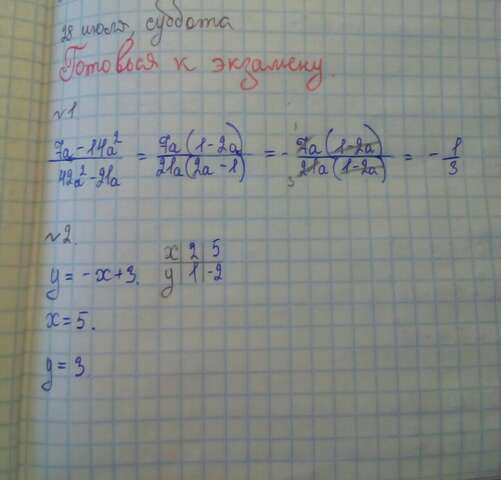 28 июля, суббота
Готовься к экзамену.
№1
7a - 14a² / 42a² - 21a = 7a(1-2a) / 21a(2a-1) = - 7a(1-2a) / 21a(1-2a) = - 1/3
№2.
x | 2 | 5
y = -x+3. y | 1 | -2
x = 5.
y = 3.